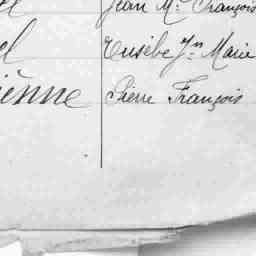 Jean M. François
Eusèbe Jn Marie
ienne Pierre François